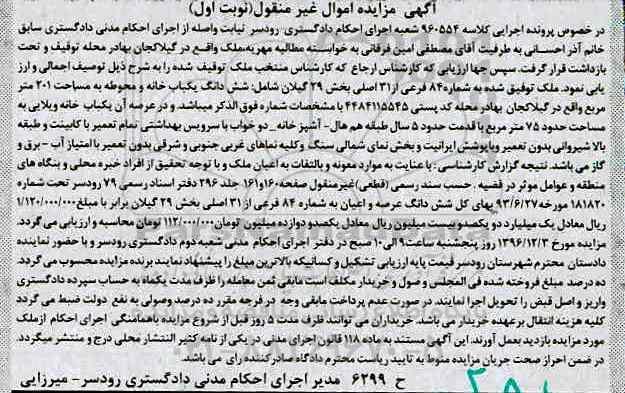 آگهی مزایده اموال غیر منقول(نوبت اول)
در خصوص پرونده اجرایی کلاسه ۹۶۰۵۵۴ شعبه اجرای احکام دادگستری-رودسر نیابت واصله از اجرای احکام مدنی دادگستری سابق
خانم آذر احسانی به طرفیت آقای مصطفی امین فرقانی به خواسته مطالبه مهریه،ملک واقع در گیلاکجان بهادر محله توقیف و تحت
بازداشت قرار گرفت. سپس جها ارزیابی که کارشناس ارجاع که کارشناس منتخب ملک توقیف شده را به شرح ذیل توصیف اجمالی و ارز
یابی نمود. ملک توقیف شده به شماره ۸۴ فرعی از ۳۱ اصلی بخش ۲۹ گیلان شامل: شش دانگ یکباب خانه و محوطه به مساحت ۲۰۱ متر
مربع واقع در گیلاکجان بهادر محله کد پستی ۴۴۸۴۱۱۵۵۴۵ با مشخصات شماره فوق الذکر میباشد. و در عرصه آن یکباب خانه ویلایی به
مساحت حدود ۷۵ متر مربع با قدمت حدود ۵ سال طبقه هم هال- آشپز خانه_دو خواب با سرویس بهداشتی تمام تعمیر با کابینت و طبقه
بالا شیروانی بدون تعمیر وباپوشش ایرانیت و بخش نمای شمالی سنگ وکلیه نماهای غربی جنوبی و شرقی بدون تعمیر با امتیاز آب - برق و
گاز می باشد. نتیجه گزارش کارشناسی: با عنایت به موارد معونه و بالتفات به اعیان ملک و با توجه تحقیق از افراد خبره محلی و بنگاه های
منطقه و عوامل موثر در قضیه . حسب سند رسمی (قطعی)غیرمنقول صفحه ۱۶۰و۱۶۱ جلد ۲۹۶ دفتر اسناد رسمی ۷۹ رودسر تحت شماره
۱۸۱۸۲۰ مورخه ۹۳/۶/۲۷ بهای کل شش دانگ عرصه و اعیان به شماره ۸۴ فرعی از ۳۱ اصلی بخش ۲۹ گیلان برابر با مبلغ ۱/۱۲۰/۰۰۰/۰۰۰
ریال معادل یک میلیارد دو یکصدو بیست میلیون ریال معادل یکصدو دوازده میلیون تومان۱۱۲/۰۰۰/۰۰۰ تومان محاسبه و ارزیابی می گردد.
مزایده مورخ ۱۳۹۶/۱۲/۳ روز پنجشنبه ساعت ۹ الی۱۰ صبح در دفتر اجرای احکام مدنی شعبه دوم دادگستری رودسر و با حضور نماینده
دادستان محترم شهرستان رودسر قیمت پایه ارزیابی تشکیل و کسانیکه بالاترین مبلغ را پیشنهاد نمایند برنده مزایده محسوب می گردد.
ده درصد مبلغ فروخته شده فی المجلس و صول و خریدار مکلف است مابقی ثمن معامله را ظرف مدت یکماه به حساب سپرده دادگستری
واریز و اصل قبض را تحویل اجرا نمایند. در صورت عدم پرداخت مابقی وجه در فرجه مقرر ده درصد وصولی به نفع دولت ضبط می گردد
کلیه هزینه انتقال برعهده خریدار می باشد. خریداران می توانند ظرف مدت ۵ روز قبل از شروع مزایده باهماهنگی اجرای احکام ازملک
مورد مزایده بازدید بعمل آورند. این آگهی مستند به ماده ۱۱۸ قانون اجرای مدنی در یکی از نامه کثیر النتشار محلی درج و منتشر میگردد.
در ضمن احراز صحت جریان مزایده منوط به تایید ریاست محترم دادگاه صادرکننده رای می باشد.
ح ۶۲۹۹ مدیر اجرای احکام مدنی دادگستری رودسر- میرزایی